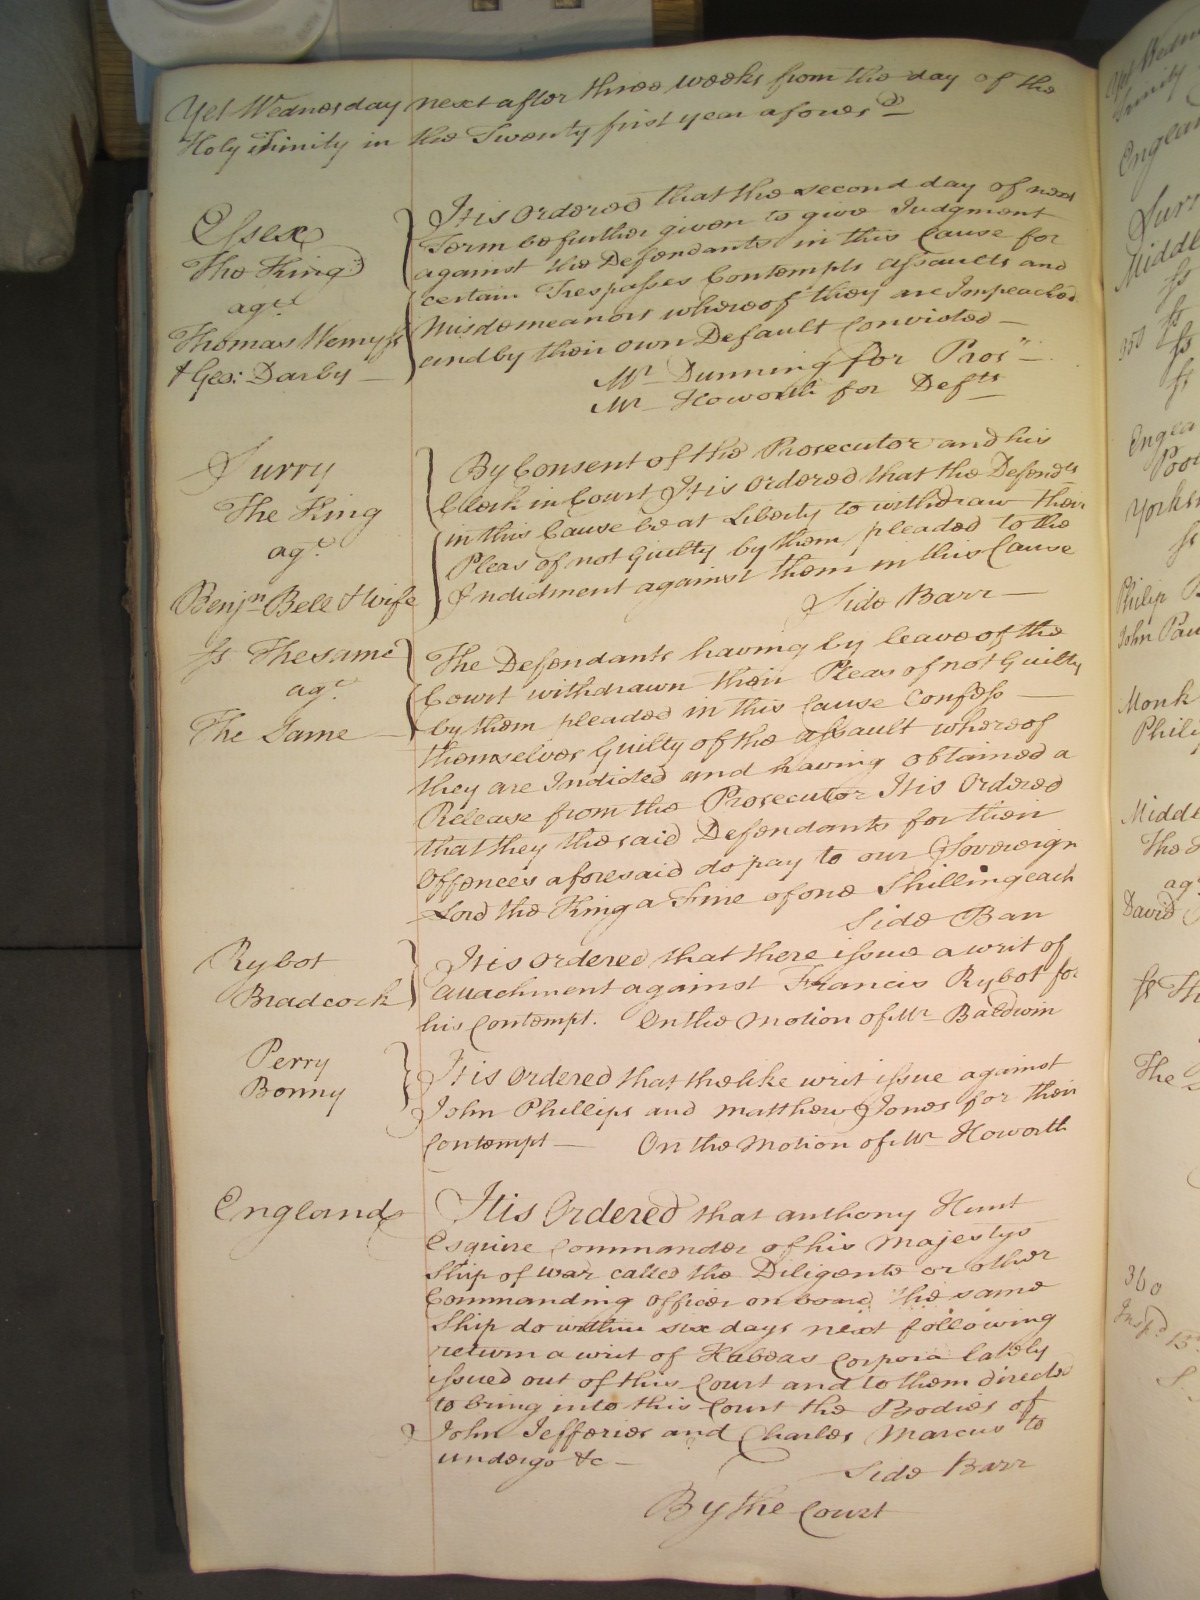 Yet Wednesday next after three weeks from the day of the
Holy Trinity in the Twenty first year aforesd
Essex
The King
agt
Thomas Wemyss
& Geo: Darby
It is Ordered that the second day of next
Term be further given to give Judgment
against the Defendants in this Cause for
certain Trespasses Contempts Assaults and
Misdemeanors whereof they are Impeached
and by their own Default Convicted
Mr Dunning for Pros
Mr Howorth for Defts
Surry
The King
agt
Benjn Bell & wife
By Consent of the Prosecutor and his
Clerk in Court It is Ordered that the Defendts
in this Cause be at Liberty to withdraw their
Pleas of not Guilty by them pleaded to the
Indictment against them in this Cause
Side Barr
Ss The same
agt
The Same
The Defendants having by leave of the
Court withdrawn their Pleas of not Guilty
by them pleaded in this Cause Confess
themselves Guilty of the Assault whereof
they are Indicted and having obtained a
Release from the Prosecutor It is Ordered
that they the said Defendants for their
Offences aforesaid do pay to our Sovereign
Lord the King a Fine of one Shilling each
Side Barr
Rybot
Bradcock
It is ordered that there issue a writ of
Attachment against Francis Rybot for
his Contempt. On the Motion of Mr Baldwin
Perry
Bonny
It is Ordered that the like writ issue against
John Phillips and Matthew Jones for their
Contempt — On the Motion of Mr Howorth
England
It is Ordered that Anthony Hunt
Esquire Commander of his Majestys
Ship of War called the Diligente or other
Commanding officer on board the same
Ship do within six days next following
return a writ of Habeas Corpora lately
issued out of this Court and to them directed
to bring into this Court the Bodies of
John Jefferies and Charles Marcus to
undergo &c —
Side Barr
By the Court